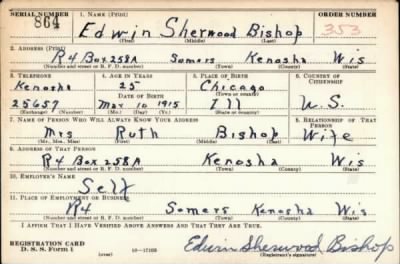 SERIAL NUMBER 1. NAME (Print) ORDER NUMBER
864 Edwin Sherwood Bishop 353
(First) (Middle) (Last)
2. ADDRESS (Print)
R4 Box 258A Somers Kenosha Wis
(Number and street or R. F. D. number) (Town) (County) (State)
3. TELEPHONE 4. AGE IN YEARS 5. PLACE OF BIRTH 6. COUNTRY OF CITIZENSHIP
Kenosha 25 Chicago
DATE OF BIRTH (Town or county)
25657 Mar 10 1915 Ill U.S.
(Exchange) (Number) (Mo.) (Day) (Yr.) (State or country)
7. NAME OF PERSON WHO WILL ALWAYS KNOW YOUR ADDRESS 8. RELATIONSHIP OF THAT PERSON
Mrs Ruth Bishop Wife
(Mr., Mrs., Miss) (First) (Middle) (Last)
9. ADDRESS OF THAT PERSON
R4 Box 258A Kenosha Wis
(Number and street or R. F. D. number) (Town) (County) (State)
10. EMPLOYER'S NAME
Self
11. PLACE OF EMPLOYMENT OR BUSINESS
R4 Somers Kenosha Wis
(Number and street or R. F. D. number) (Town) (County) (State)
I AFFIRM THAT I HAVE VERIFIED ABOVE ANSWERS AND THAT THEY ARE TRUE.
REGISTRATION CARD
D. S. S. Form 1 (over) 16—17105 Edwin Sherwood Bishop
(Registrant's signature)